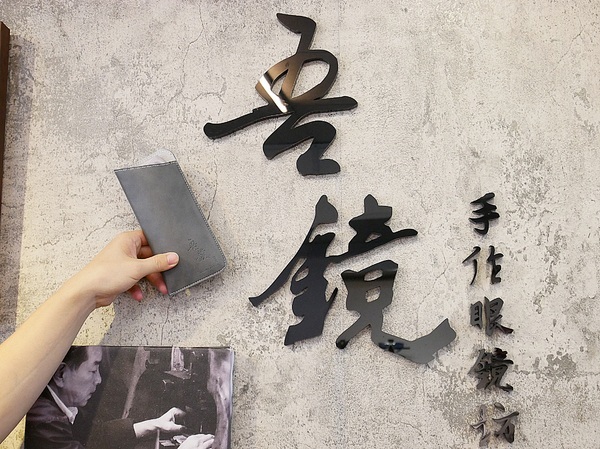 吾鏡
手作眼鏡坊